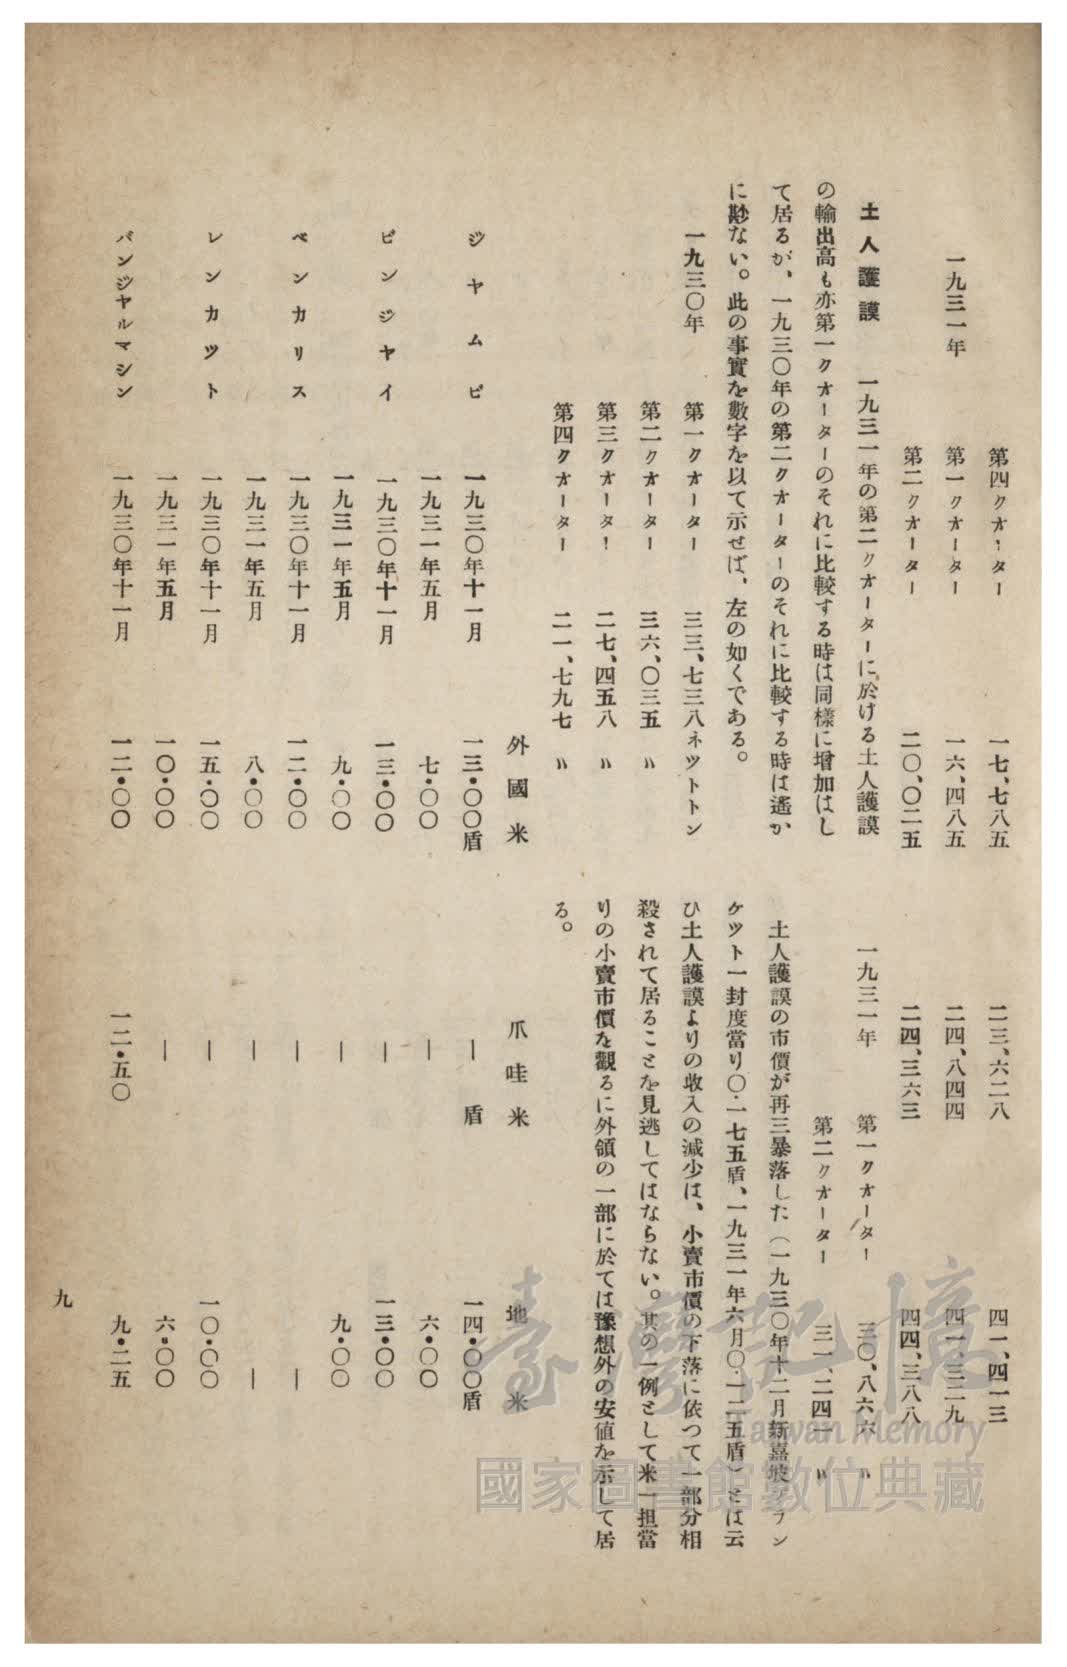 第四クオーター 一七、七八五 二三、六二八 四一、四一三
一九三一年 第一クオーター 一六、四八五 二四、八四四 四一、三二九
第二クオーター 二〇、〇二五 二四、三六三 四四、三八八
土人護謨 一九三一年の第二クオーターに於ける土人護謨
の輸出高も亦第一クオーターのそれに比較する時は同樣に增加はし
て居るが、一九三〇年の第二クオーターのそれに比較する時は遙か
に尠ない。此の事實を數字を以て示せば、左の如くである。
一九三〇年 第一クオーター 三三、七三八ネツトトン
第二クオーター 三六、〇三五 〃
第三クオーター 二七、四五八 〃
第四クオーター 二一、七九七 〃
一九三一年 第一クオーター 三〇、八六六 〃
第二クオーター 三一、二四一 〃
土人護謨の市價が再三暴落した（一九三〇年十二月新嘉坡ブラン
ケツト一封度當り〇・一七五盾、一九三一年六月〇・一二五盾）とは云
ひ土人護謨よりの收入の減少は、小賣市價の下落に依つて一部分相
殺されて居ることを見逃してはならない。其の一例として米一担當
りの小賣市價を觀るに外領の一部に於ては豫想外の安値を示して居
る。
外國米 爪哇米 地米
ジヤムビ 一九三〇年十一月 一三・〇〇盾 ― 盾 一四・〇〇盾
一九三一年五月 七・〇〇 ― 六・〇〇
ビンジヤイ 一九三〇年十一月 一三・〇〇 ― 一三・〇〇
一九三一年五月 九・〇〇 ― 九・〇〇
ベンカリス 一九三〇年十一月 一二・〇〇 ― ―
一九三一年五月 八・〇〇 ― ―
レンカツト 一九三〇年十一月 一五・〇〇 ― 一〇・〇〇
一九三一年五月 一〇・〇〇 ― 六・〇〇
バンジヤルマシン 一九三〇年十一月 一二・〇〇 一二・五〇 九・二五
九
臺灣記憶
Taiwan Memory
國家圖書館數位典藏